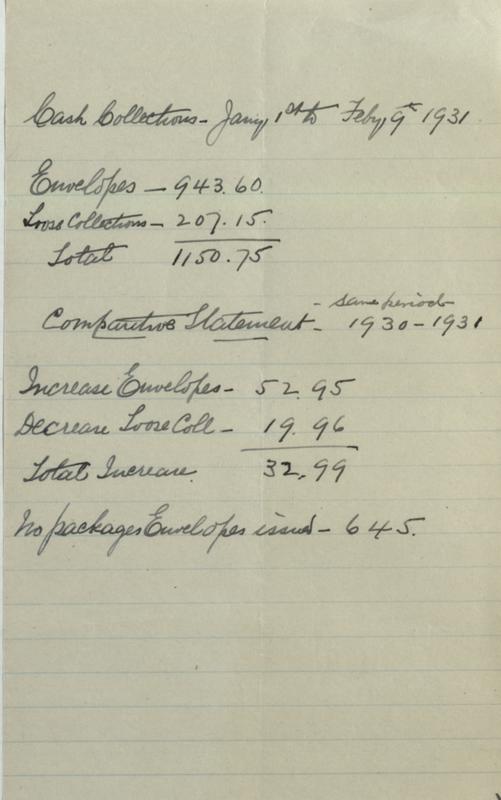 Cash Collections - Jany 1st to Feby 9th 1931
Envelopes - 943.60.
Loose Collections - 207.15.
Total 1150.75
- same period
Comparitive Statement - 1930-1931
Increase Envelopes - 52.95
Decrease Loose Coll - 19.96
Total Increase 32.99
No packages Envelopes issued - 645.